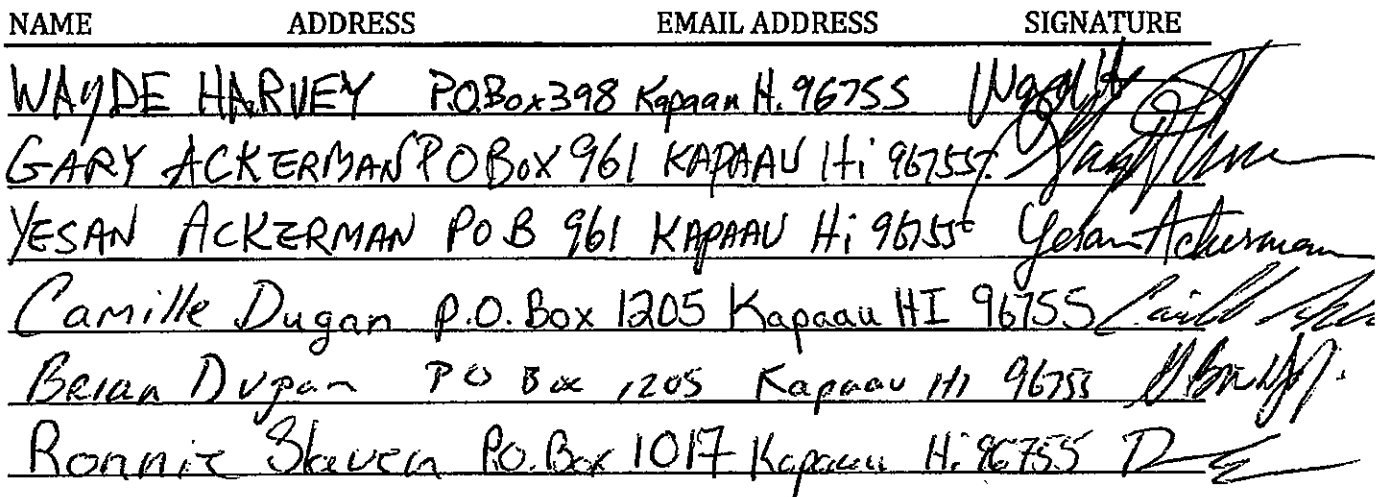 NAME ADDRESS EMAIL ADDRESS SIGNATURE
WAYDE HARVEY P.O.Box 398 Kapaau H. 96755
GARY ACKERMAN PO Box 961 KAPAAU Hi 96755
YESAN ACKERMAN PO B 961 KAPAAU Hi 96755 Yesan Ackerman
Camille Dugan P.O. Box 1205 Kapaau HI 96755
Brian Dugan PO Box 1205 Kapaau HI 96755
Ronnie P.O. Box 1017 Kapaau Hi 96755